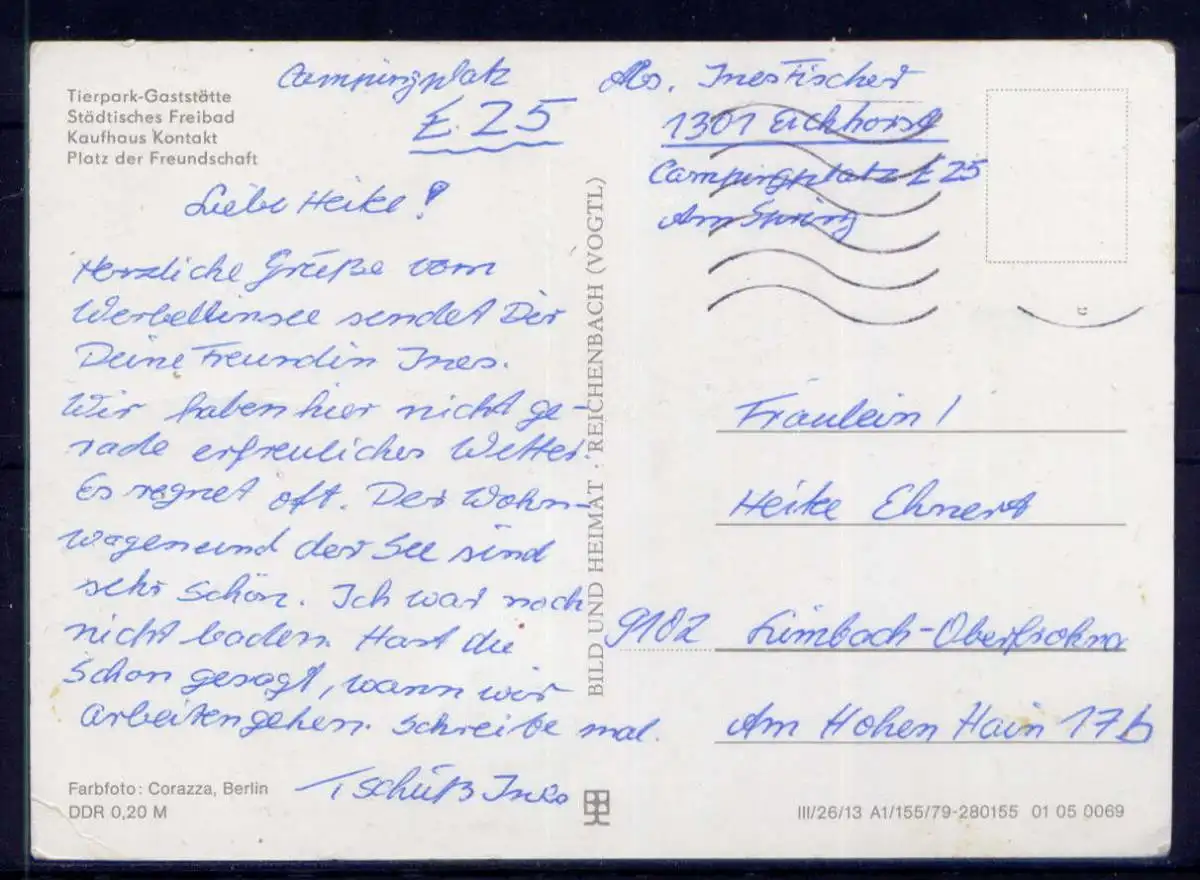 Tierpark-Gaststätte
Städtisches Freibad
Kaufhaus Kontakt
Platz der Freundschaft
Campingplatz
E 25
Liebe Heike!
Herzliche Grüße vom
Werbellinsee sendet Dir
Deine Freundin Ines.
Wir haben hier nicht ge-
rade erfreuliches Wetter.
Es regnet oft. Der Wohn-
wagen und der See sind
sehr schön. Ich war noch
nicht baden. Hast du
schon gesagt, wann wir
arbeiten gehen. Schreibe mal.
Tschüß Ines
Farbfoto: Corazza, Berlin
DDR 0,20 M
BILD UND HEIMAT · REICHENBACH (VOGTL)
Abs. Ines Fischer
1301 Eichhorst
Campingplatz E 25
Am Spring
Fräulein!
Heike Ehnert
9102 Limbach-Oberfrohna
Am Hohen Hain 17b
III/26/13 A1/155/79-280155 01 05 0069